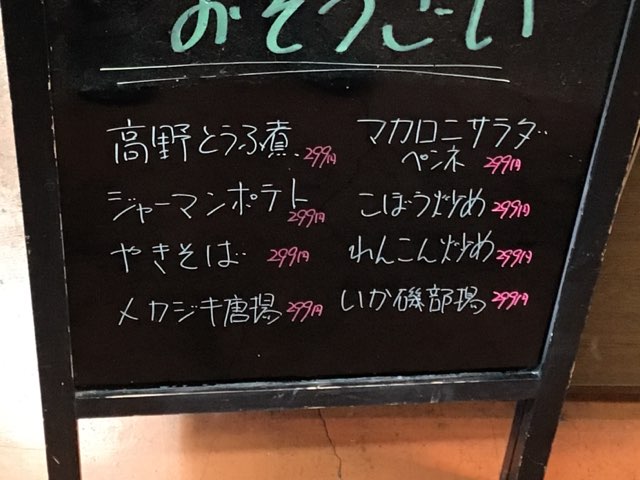 おそうざい
高野とうふ煮 299円
ジャーマンポテト
299円
やきそば 299円
メカジキ唐揚 299円
マカロニサラダ
ペンネ 299円
こぼう炒め 299円
れんこん炒め 299円
いか磯部揚 299円